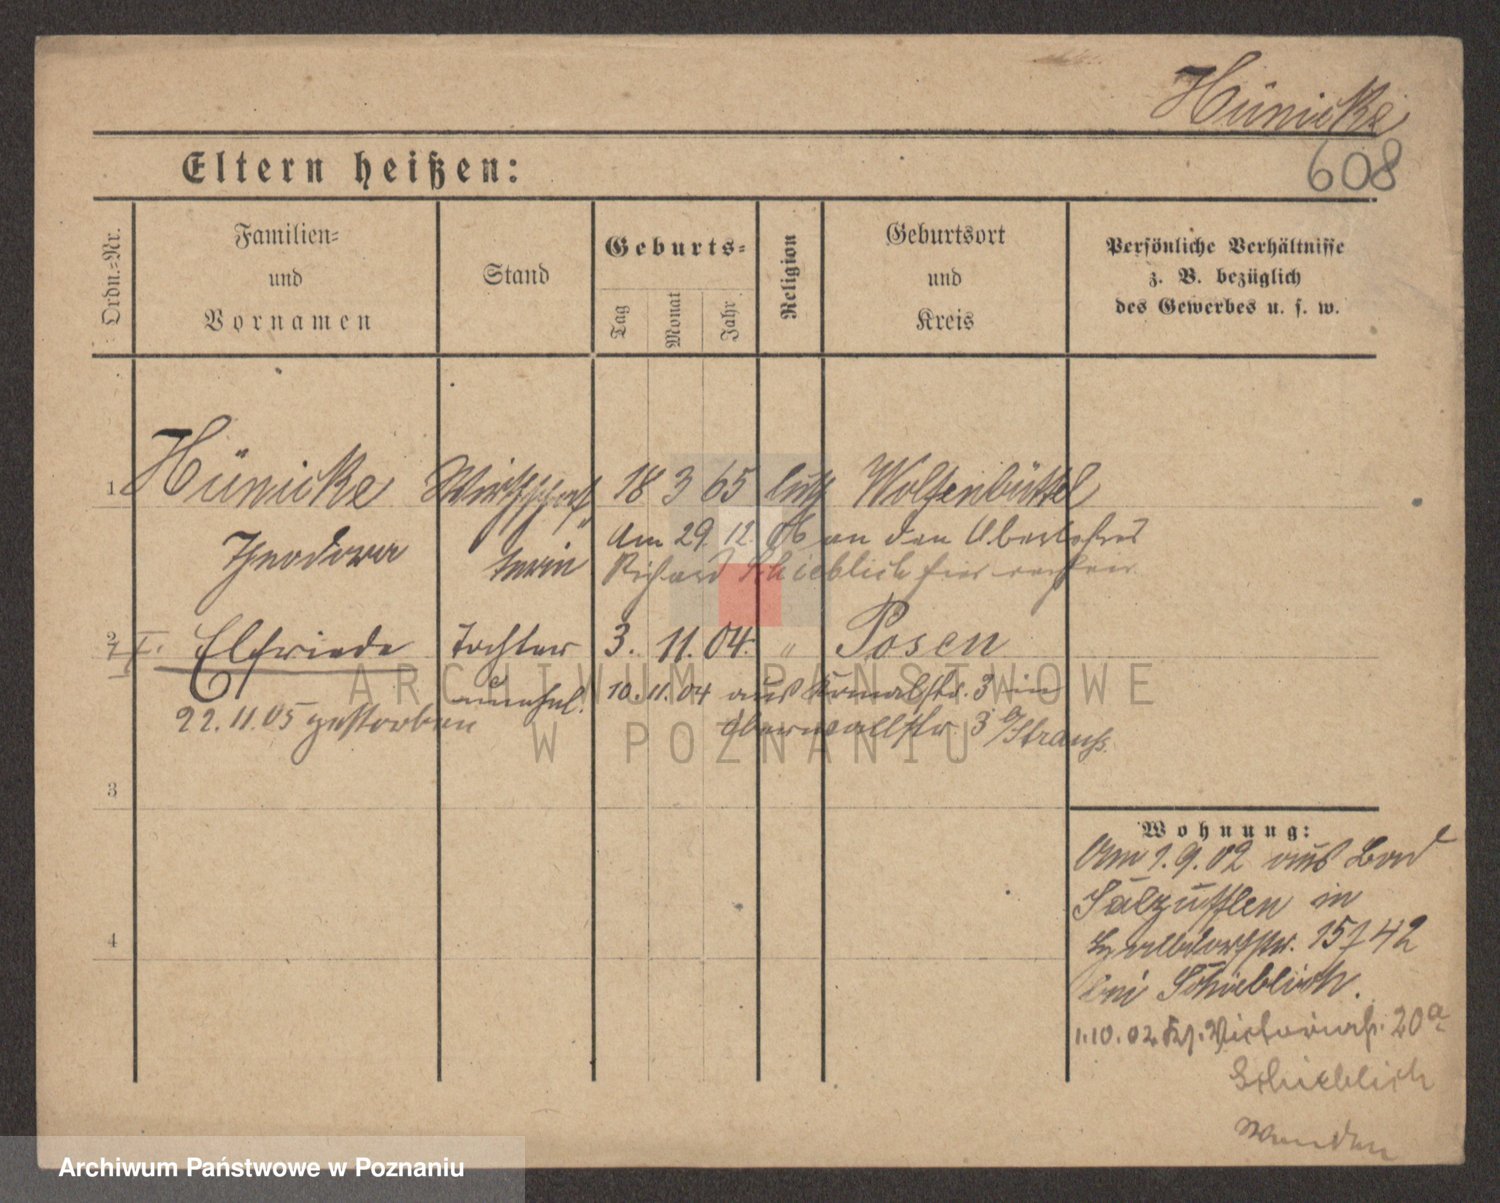 Hünicke
608
Eltern heißen:
Ordn.=Nr.
Familien=
und
Vornamen
Stand
Geburts=
Tag
Monat
Jahr
Religion
Geburtsort
und
Kreis
Persönliche Verhältnisse
z. B. bezüglich
des Gewerbes u. s. w.
1 Hünicke Wirthschaf= 18 3 65 luth Wolfenbüttel
Theodora terin Am 29. 12. 06 an den Oberlehrer
Richard Schieblich hier
2 Elfriede Tochter 3. 11. 04. " Posen
unehel. 10. 11. 04 aus 3 in
22.11.05 gestorben Oberwallstr 3 b/Strauss
3
4
Wohnung:
Am 1. 9. 02 aus Bad
Salzufflen in
15/42
bei Schieblich.
1.10.02. Victoriastr. 20a
Schieblich
Wenden
ARCHIWUM PAŃSTWOWE
W POZNANIU
Archiwum Państwowe w Poznaniu